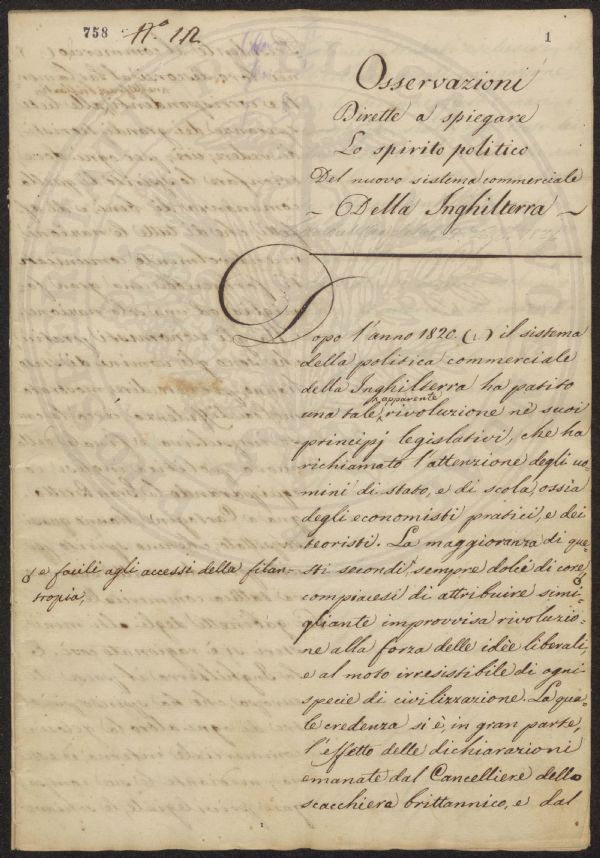 758
N.º 112
1
Osservazioni
Dirette a spiegare
Lo spirito politico
Del nuovo sistema commerciale
~ Della Inghilterra ~
Dopo l'anno 1820 (1) il sistema
della politica commerciale
della Inghilterra ha patito
apparente
una tale rivoluzione ne' suoi
principj legislativi, che ha
richiamato l'attenzione degli uo-
mini di stato, e di scola, ossia
degli economisti pratici, e dei
teoristi. La maggioranza di que-
sti secondi, sempre dolci di core
e facili agli accessi della filan-
tropia,
compiacesi di attribuire simi-
gliante improvvisa rivoluzio-
ne alla forza delle idèe liberali,
e al moto irresistibile di ogni
specie di civilizzazione. La qua-
le credenza si è, in gran parte,
l'effetto delle dichiarazioni
emanate dal Cancelliere dello
scacchiere brittannico, e dal